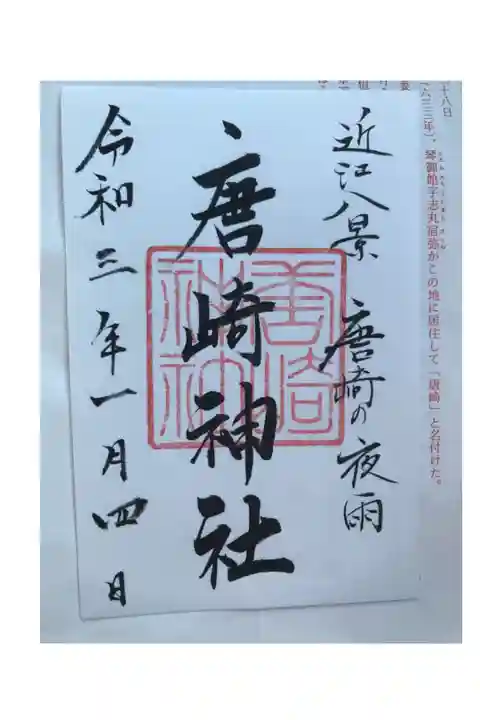 十八日
六三三年）、琴御館宇志丸宿弥がこの地に居住して「唐崎」と名付けた。
近江八景 唐崎の夜雨
唐崎神社
唐崎神社
令和三年一月四日